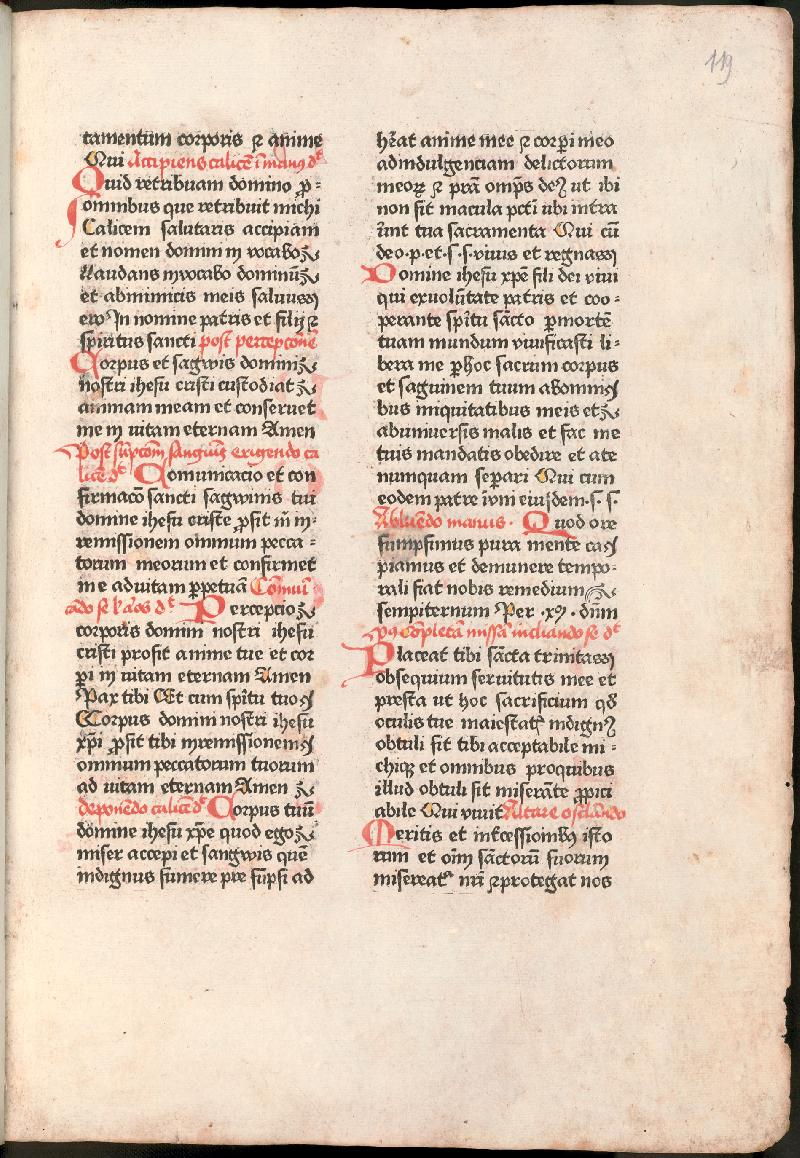 119
tamentum corporis ⁊ anime
Qui Accipiens calicē ī manꝰ dt
Quid retribuam domino ꝓ-
omnibus que retribuit michi
Calicem salutaris accipiam
et nomen domini in vocabo
Laudans invocabo dominū
et abinimicis meis saluuss
ero In nomine patris et filij ⁊
spiritus sancti post percepcōnē
Corpus et sagwis domini
nostri ihesu cristi custodiat
animam meam et conseruet
me in uitam eternam Amen
Post sūpcōm sanguīs erigendo ca
licē dt Comunicacio et con
firmacō sancti sagwinis tui
domine ihesu criste ꝓsit m̄ in-
remissionem omnium pecca-
torum meorum et confirmet
me aduitam ꝑpetuā Cōmuni
cādo se ł aīos dt Percepcio
corporis domini nostri ihesu
cristi prosit anime tue et cor
ꝑi in uitam eternam Amen
Pax tibi Et cum spītu tuo
Corpus domini nostri ihesu
xpī ꝓsit tibi inremissionem
omnium peccatorum tuorum
ad uitam eternam Amen
deponēdo calicē dt Corpus tuū
domine ihesu xpē quod ego
miser accepi et sangwis quē
indignus sumere pre sūpsi ad
hēat anime mee ⁊ corꝑi meo
adindulgenciam delictorum
meoꝝ ⁊ prā omp̄s deꝰ ut ibi
non sit macula pctī ubi intra
īnt tua sacramenta Qui cū
deo.p.et.s.s.viuis et regnas
Domine ihesu xpē fili dei viui
qui exuolūtate patris et coo-
perante spītu sācto ꝑmortē
tuam mundum viuificasti li-
bera me ꝑhoc sacrum corpus
et saguinem tuum abomni
bus iniquitatibus meis et
abuniuersis malis et fac me
tuis mandatis obedire et ate
nunquam seꝑari Qui cum
eodem patre īvni eiusdem.s.s.
Abluēdo manus. Quod ore
sumpsimus pura mente ca
piamus et demunere tempo-
rali fiat nobis remedium
sempiternum Per .xꝑ. dūm
pꝰ cōpletā missā incliando se dt
Placeat tibi sācta trinitas
obsequium seruitutis mee et
presta ut hoc sacrificium qđ
oculis tue maiestatꝭ indignꝰ
obtuli sit tibi acceptabile mi-
chiqꝫ et omnibus proquibus
illud obtuli sit miserāte ꝓpici
abile Qui viuit Altare osclando
Meritis et int̄cessionibꝰ isto
rum et oīm sāctorū suorum
misereatꝰ nrī ⁊protegat nos